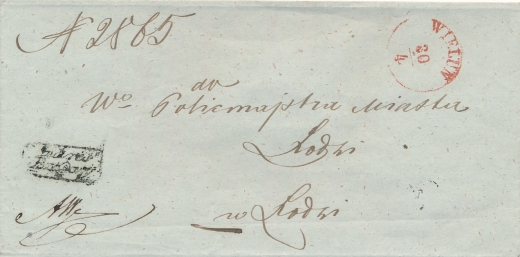 N 2865
WIELUŃ
20/4
do
Wo Policmajstra Miasta
Łodzi
w Łodzi